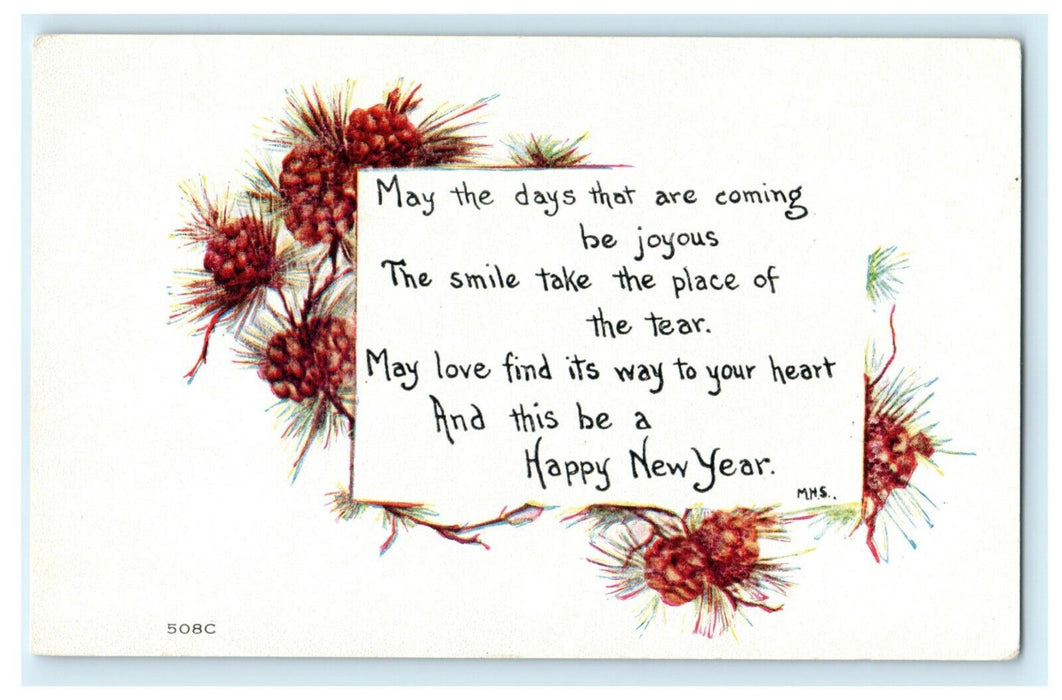 May the days that are coming
be joyous
The smile take the place of
the tear.
May love find its way to your heart
And this be a
Happy New Year.
M.H.S..
508C